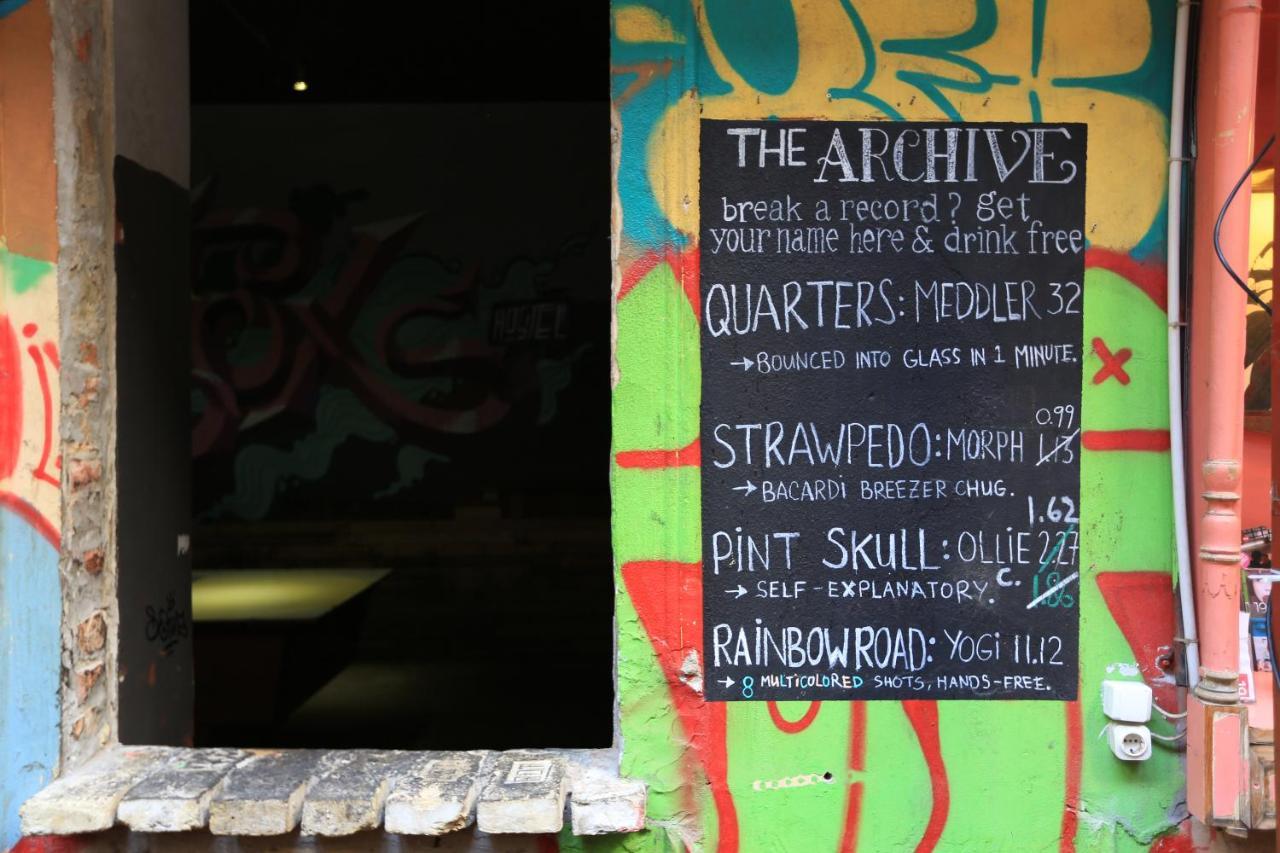 THE ARCHIVE
break a record? get
your name here & drink free
QUARTERS: MEDDLER 32
→BOUNCED INTO GLASS IN 1 MINUTE.
0.99
STRAWPEDO: MORPH 1.13
→BACARDI BREEZER CHUG.
1.62
PINT SKULL: OLLIE 2.27
→SELF-EXPLANATORY. C. 1.86
RAINBOWROAD: YOGI 11.12
→8 MULTICOLORED SHOTS, HANDS-FREE.
HOSTEL